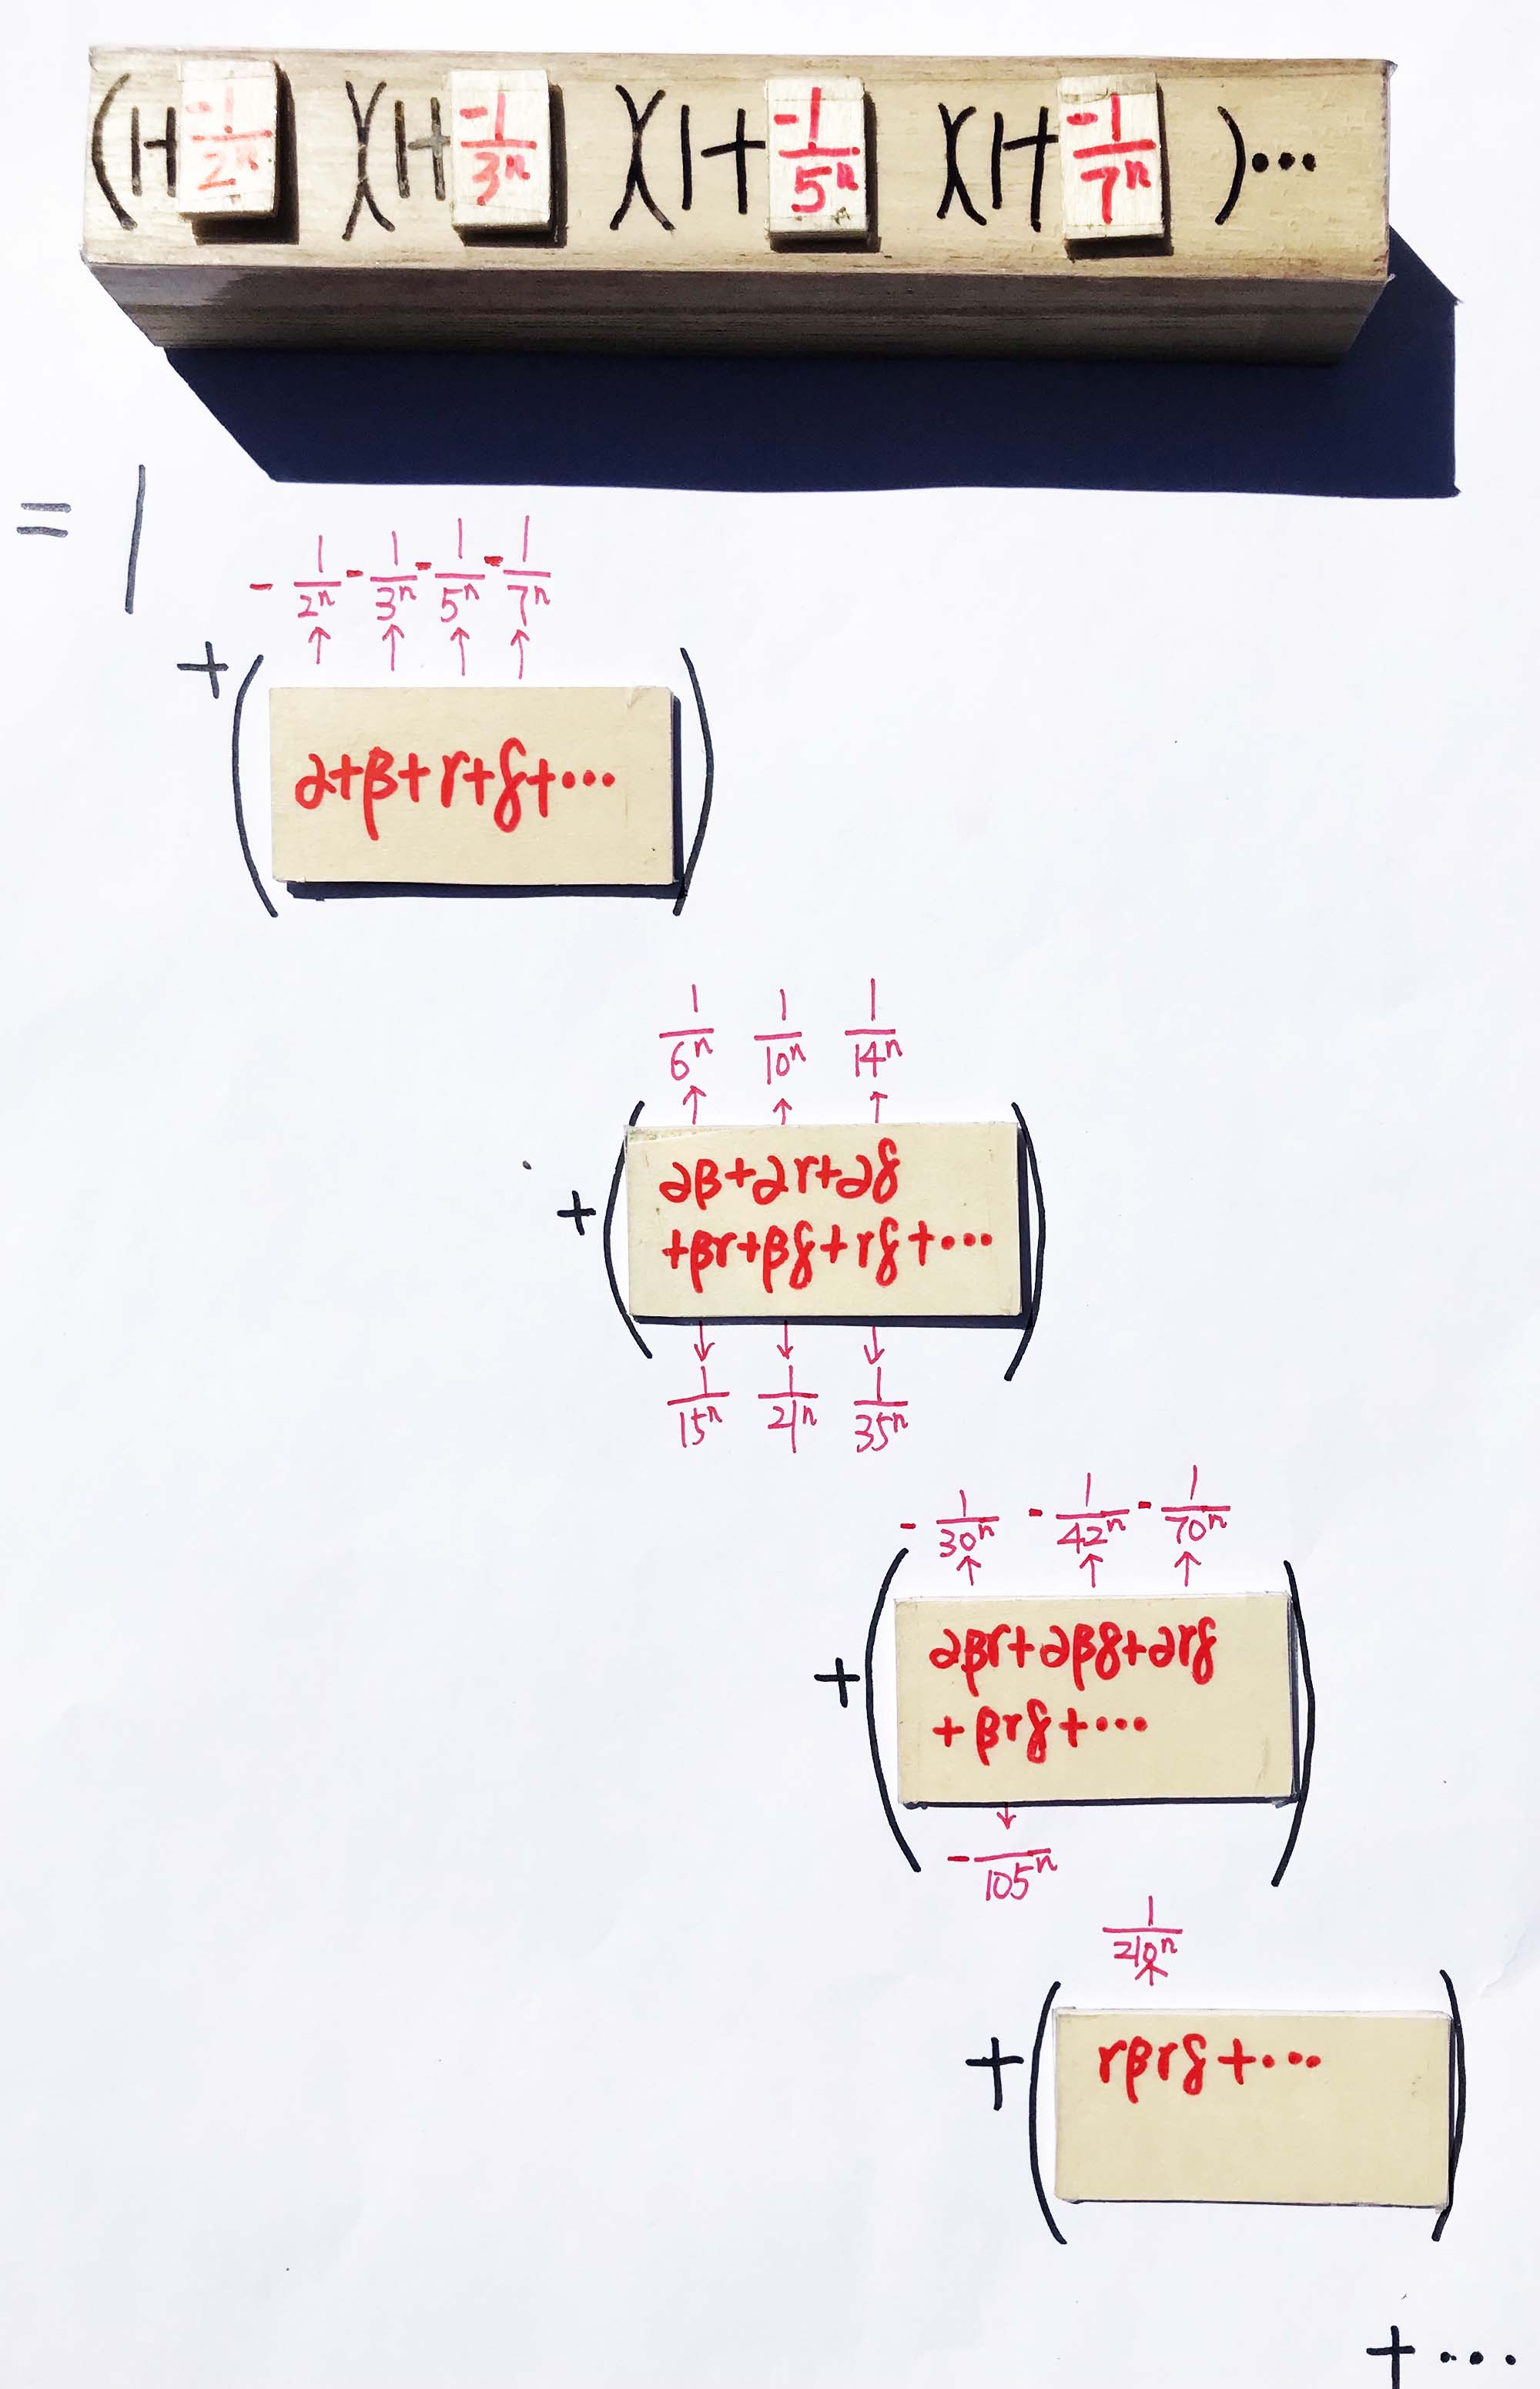 (1+ -1/2ⁿ )(1+ -1/3ⁿ )(1+ -1/5ⁿ )(1+ -1/7ⁿ )···
= 1
- 1/2ⁿ - 1/3ⁿ - 1/5ⁿ - 1/7ⁿ
↑ ↑ ↑ ↑
+( α+β+γ+δ+··· )
1/6ⁿ 1/10ⁿ 1/14ⁿ
↑ ↑ ↑
+( αβ+αγ+αδ
+βγ+βδ+γδ+··· )
↓ ↓ ↓
1/15ⁿ 1/21ⁿ 1/35ⁿ
- 1/30ⁿ - 1/42ⁿ - 1/70ⁿ
↑ ↑ ↑
+( αβγ+αβδ+αγδ
+βγδ+··· )
↓
- /105ⁿ
1/210ⁿ
↑
+( γβγδ+··· )
+···